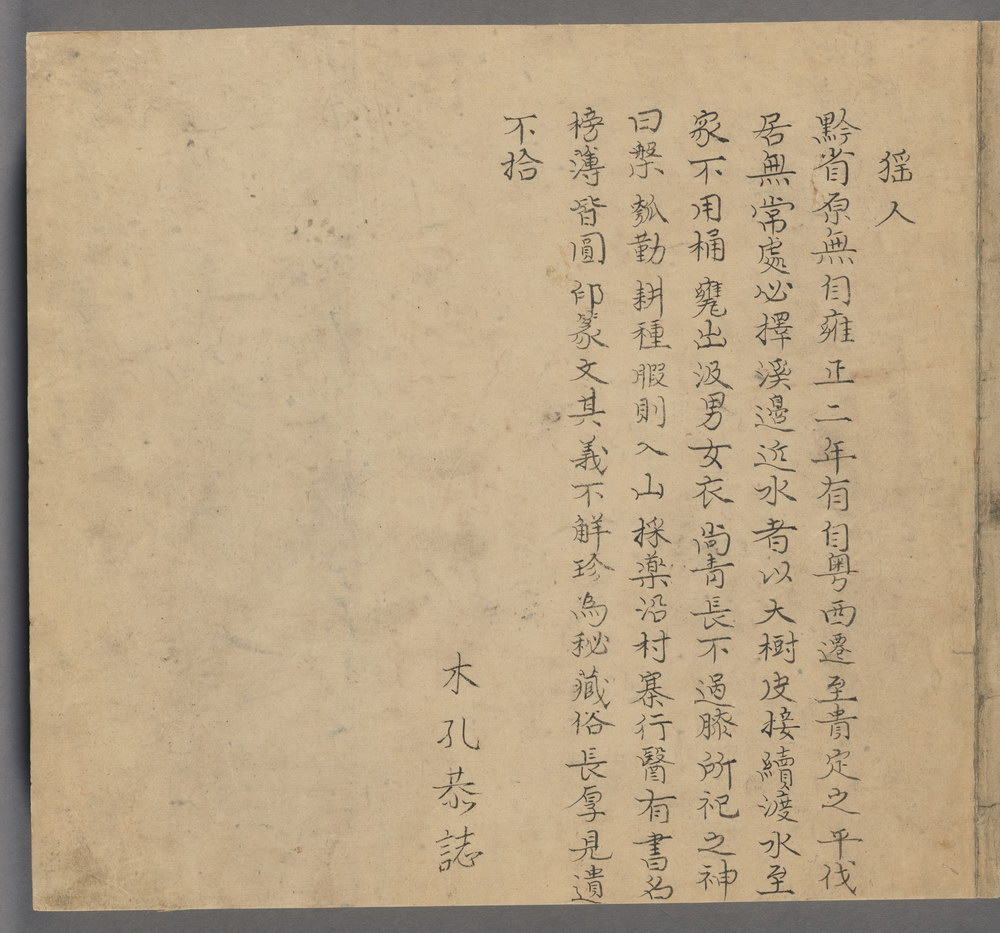 猺人
黔省原無自雍正二年有自粤西遷至貴定之平伐
居無常處必擇溪邊近水者以大樹皮接續渡水至
家不用桶甕出汲男女衣尚青長不過膝所祀之神
曰槃瓠勤耕種暇則入山採藥沿村寨行醫有書名
榜薄皆圓印篆文其義不觧珍為秘藏俗長厚見遺
不拾
木孔恭誌